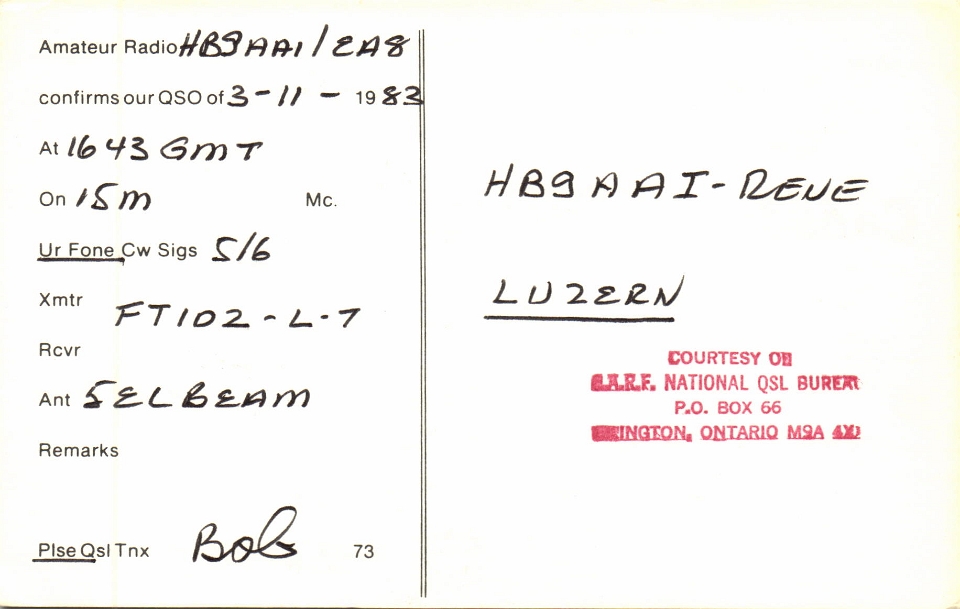 Amateur Radio HB9AAI/EA8
confirms our QSO of 3-11- 1983
At 1643 GMT
On 15m Mc.
Ur Fone Cw Sigs 5/6
Xmtr FT102-L-7
Rcvr
Ant 5ELBEAM
Remarks
Plse Qsl Tnx Bob 73
HB9AAI-RENE
LUZERN
COURTESY OF
C.A.R.F. NATIONAL QSL BUREAU
P.O. BOX 66
ONTARIO M9A